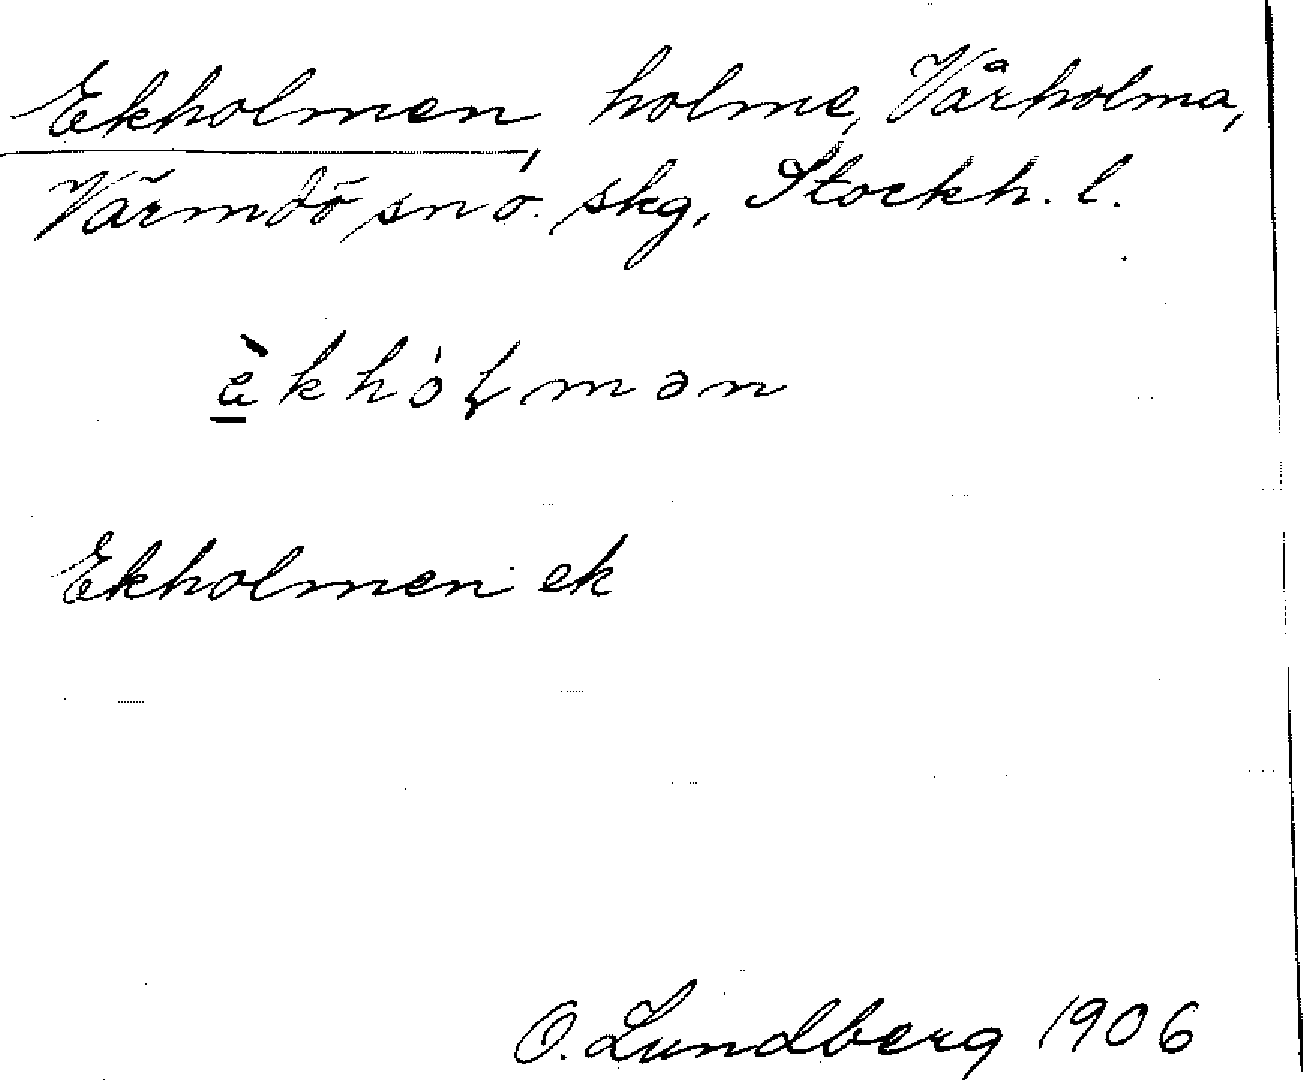 Ekholmen, holme, Vårholma,
Värmdö sn o. skg, Stockh. l.
èkhólmən
Ekholmen: ek
O. Lundberg 1906